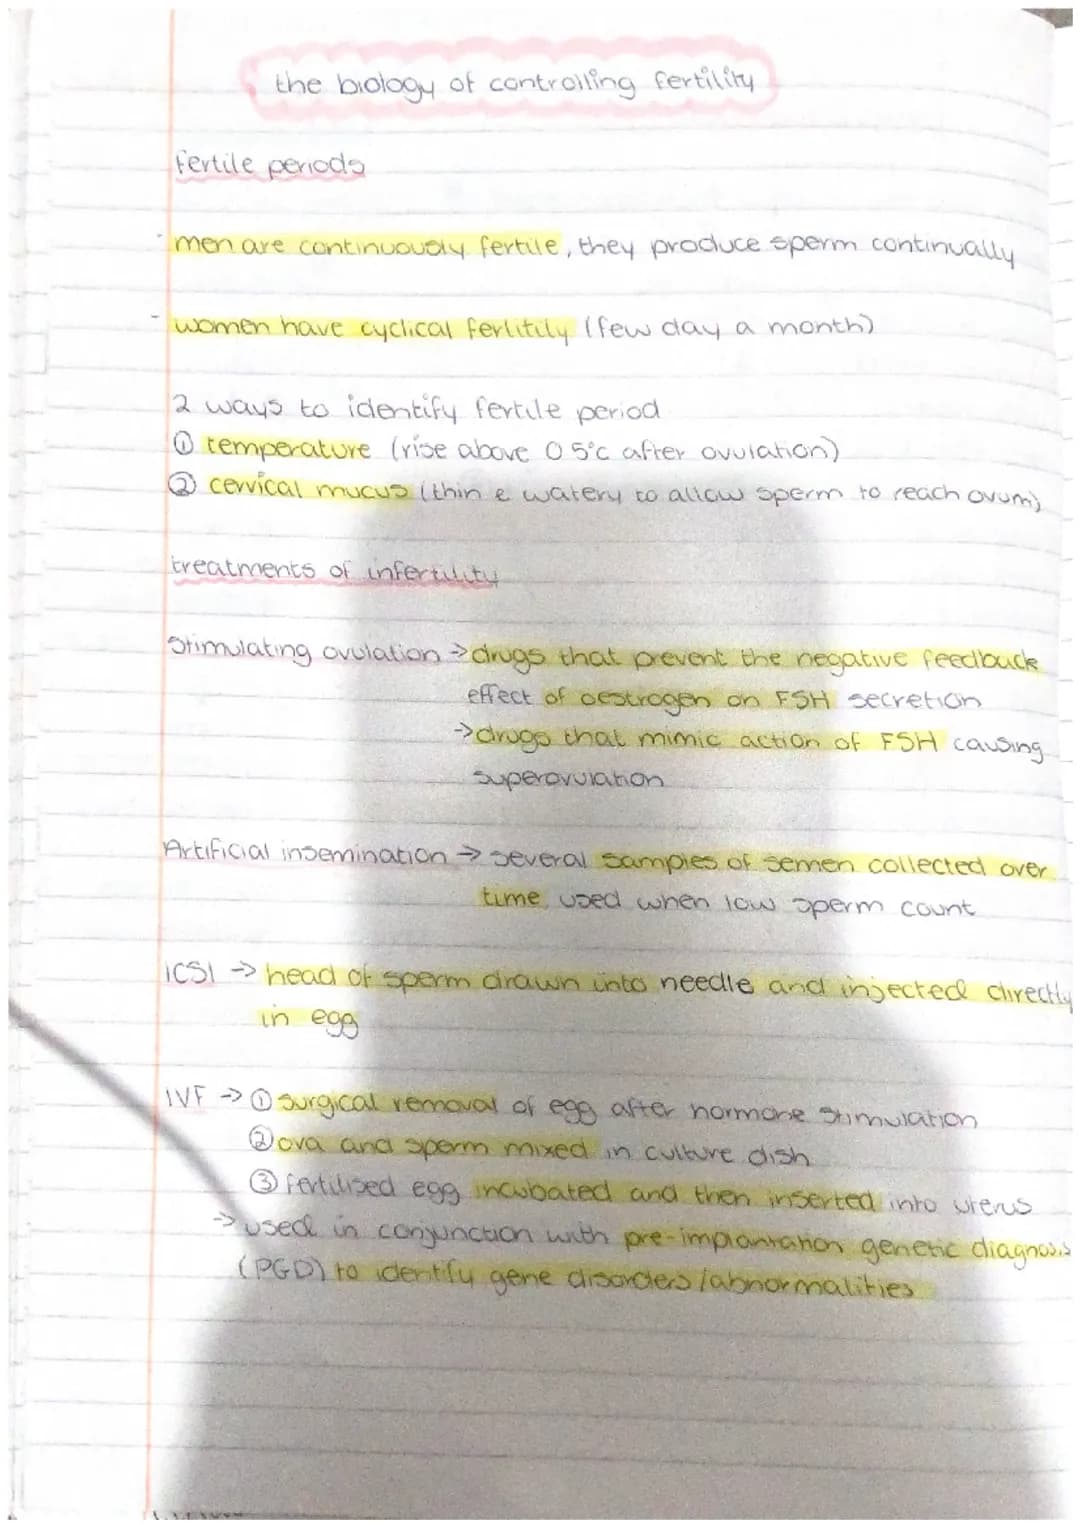 the biology of controlling fertility
fertile periods
- men are continuously fertile, they produce sperm continually
- women have cyclical ferlitily (few day a month)
2 ways to identify fertile period
① temperature (rise above 0.5°c after ovulation)
② cervical mucus (thin e watery to allow sperm to reach ovum)
treatments of infertility
Stimulating ovulation → drugs that prevent the negative feedback
effect of oestrogen on FSH secretion
→ drugs that mimic action of FSH causing
superovulation
Artificial insemination → several samples of semen collected over
time used when low sperm count
ICSI → head of sperm drawn into needle and injected directly
in egg
IVF → ① surgical removal of egg after hormone stimulation
② ova and sperm mixed in culture dish
③ fertilised egg incubated and then inserted into uterus
→ used in conjunction with pre-implantation genetic diagnosis
(PGD) to identify gene disorders/abnormalities